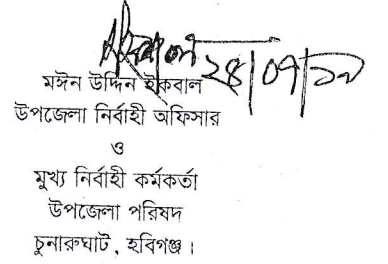 ২৪/০৭/১৯
মঈন উদ্দিন ইকবাল
উপজেলা নির্বাহী অফিসার
ও
মুখ্য নির্বাহী কর্মকর্তা
উপজেলা পরিষদ
চুনারুঘাট, হবিগঞ্জ।